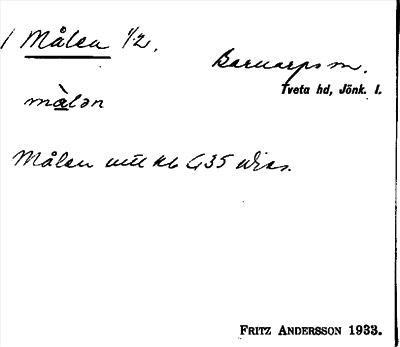 1 Målen 1/2.
Barnarps sn.
Tveta hd, Jönk. l.
màlən
Målen mtl Kb G35
FRITZ ANDERSSON 1933.